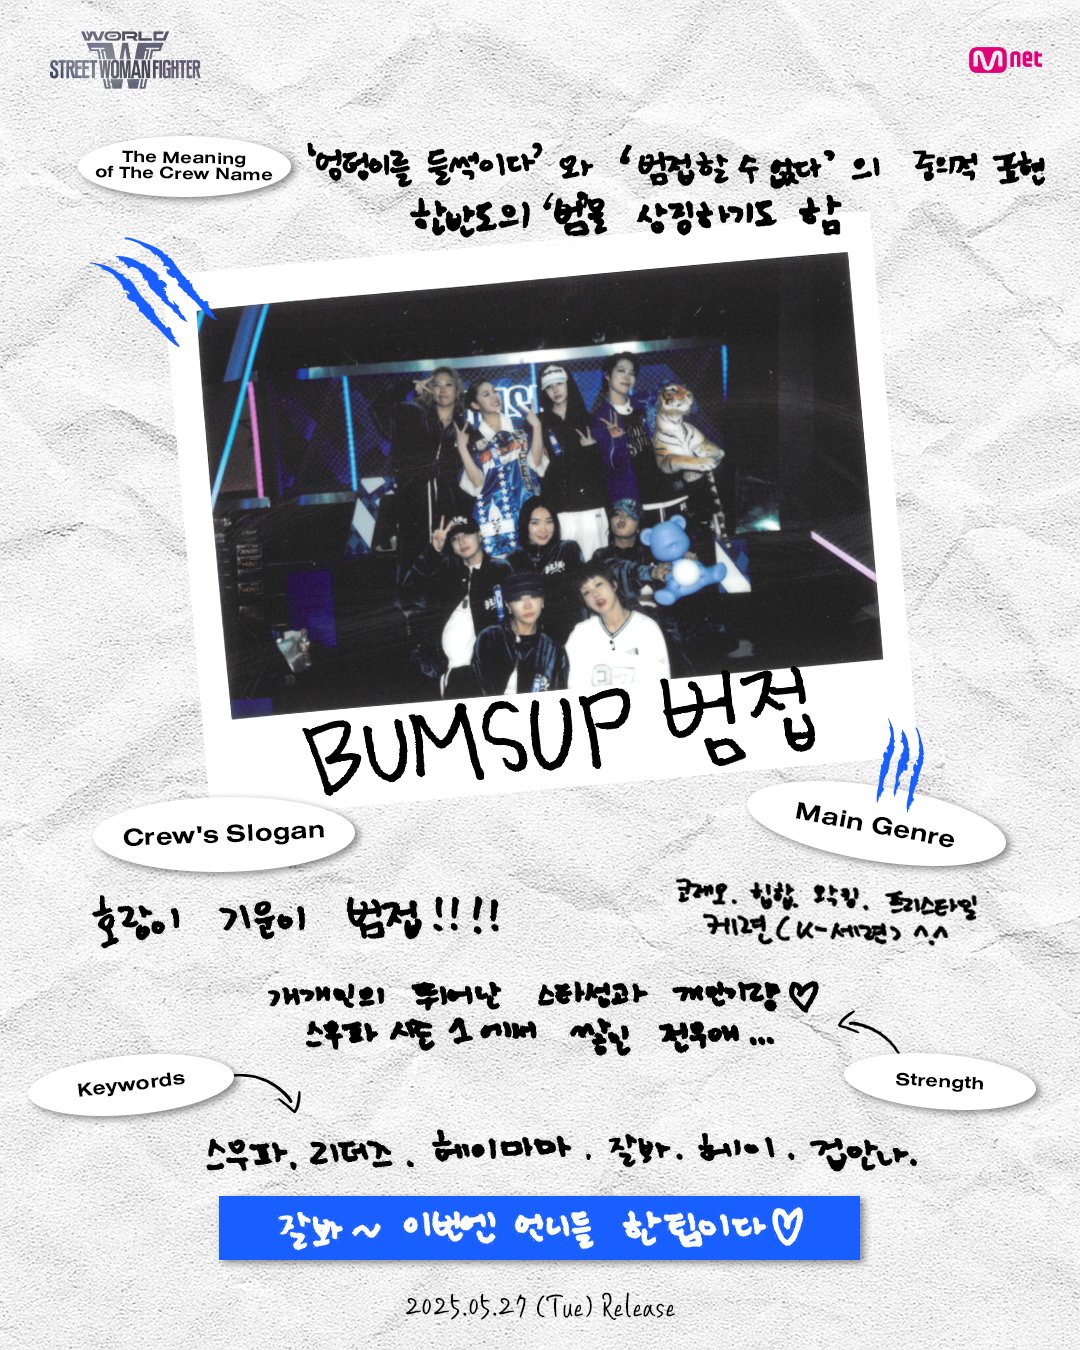 WORLD
W
STREET WOMAN FIGHTER
Mnet
The Meaning
of The Crew Name
'엉덩이를 들썩이다' 와 '범접할 수 없다' 의 중의적 표현
한반도의 '범'을 상징하기도 함
BUMSUP 범접
Crew's Slogan
호랑이 기운이 범접!!!!
Main Genre
코레오. 힙합. 왁킹. 프리스타일
케련(K-세련) ^.^
개개인의 뛰어난 스타성과 개인기량♡
스우파 시즌 1에서 쌓인 전우애...
Strength
Keywords
스우파. 리더즈. 헤이마마. 잘봐. 헤이. 겁안나.
잘봐~ 이번엔 언니들 한팀이다♡
2025.05.27 (Tue) Release